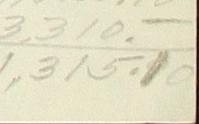 3,310.—
1,315.10